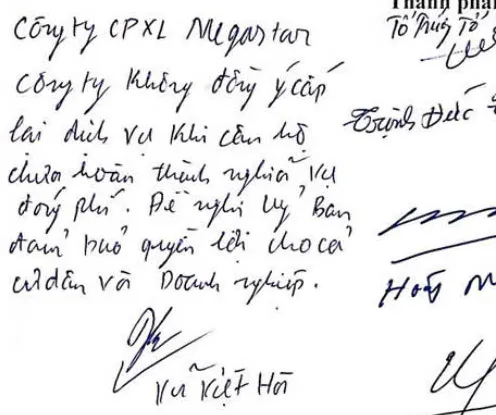 Thành phầ
Công ty CPXL Megastar
Tổ Trưởng Tổ
Công ty không đồng ý cấp
lại dịch vụ khi căn hộ
Trịnh Đức
chưa hoàn thành nghĩa vụ
đóng phí. Đề nghị Uỷ Ban
đảm bảo quyền lợi cho cả
cư dân và Doanh nghiệp.
Vũ Việt Hà